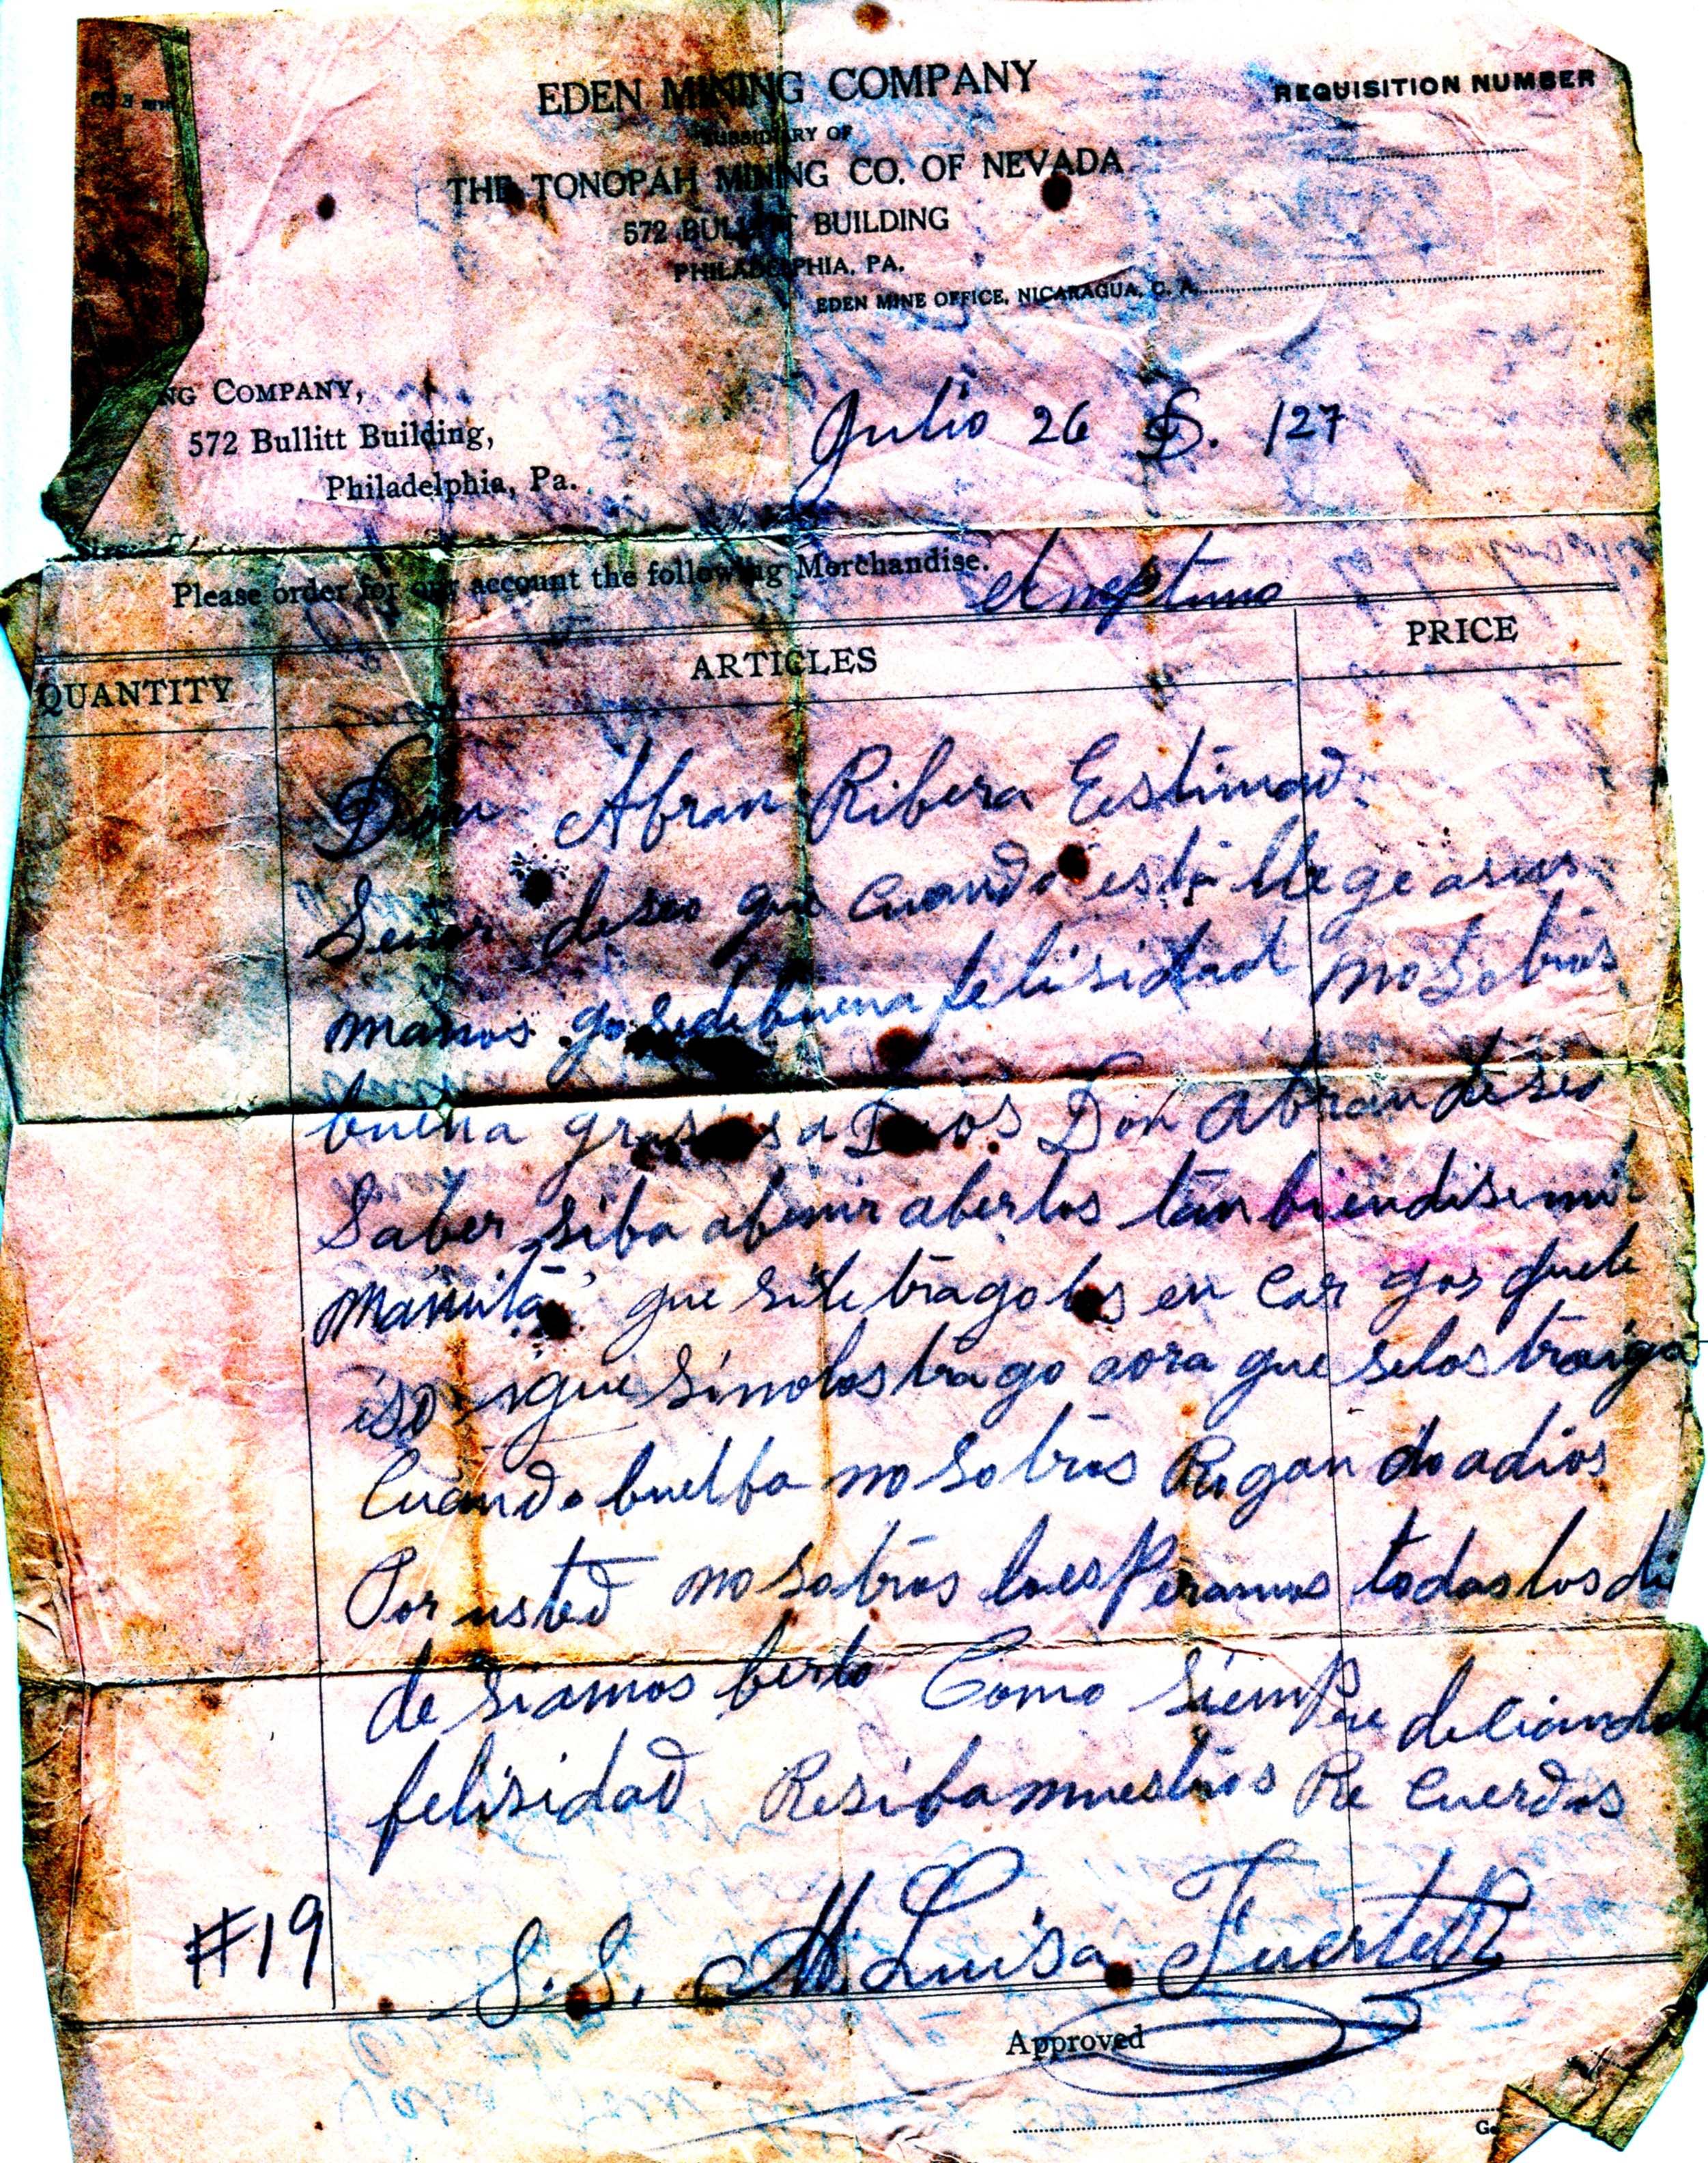 EDEN MINING COMPANY
REQUISITION NUMBER
SUBSIDIARY OF
THE TONOPAH MINING CO. OF NEVADA
572 BULLITT BUILDING
PHILADELPHIA, PA.
EDEN MINE OFFICE, NICARAGUA, C. A.
NG COMPANY,
572 Bullitt Building,
Philadelphia, Pa.
Julio 26 D. 127
Please order for our account the following Merchandise.
el neptuno
QUANTITY ARTICLES PRICE
Don Abran Ribera Estimad.
Señor deseo que cuando esta llege asus
manos gosedebuena felisidad nosotros
buena grasias a Dios Don Abran deseo
Saber siba abenir aberlos tanbiendisemi
mamita que sile trago los en Car gos quele
iso yque sinolos trago aora que selos traiga
Cuando buelba nosotros Rogando adios
Por usted nosotros loesperamos todos los di
desiamos berlo Como siempre deciandole
felisidad Resiba nuestros Re cuerdos
#19
S. S. M. Luisa
Approved